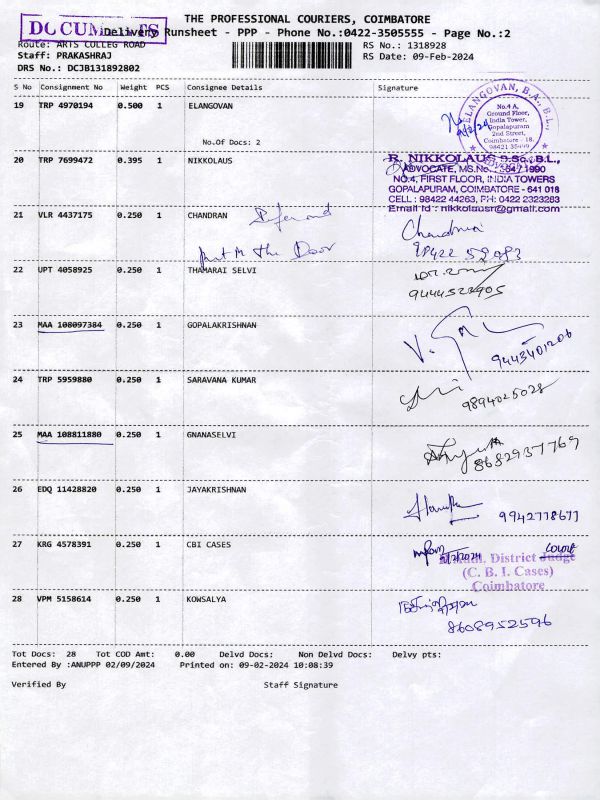 THE PROFESSIONAL COURIERS, COIMBATORE
DOCUMENTS
Delivery Runsheet - PPP - Phone No.:0422-3505555 - Page No.:2
Route: ARTS COLLEG ROAD
RS No.: 1318928
Staff: PRAKASHRAJ
RS Date: 09-Feb-2024
DRS No.: DCJB131892802
S No Consignment No Weight PCS Consignee Details Signature
19 TRP 4970194 0.500 1 ELANGOVAN
No.Of Docs: 2
ELANGOVAN, B.A., B.L.,
No.4 A,
Ground Floor,
India Tower,
Gopalapuram
2nd Street,
Coimbatore - 18.
ADVOCATE
20 TRP 7699472 0.395 1 NIKKOLAUS
R. NIKKOLAUS B.Sc., B.L.,
ADVOCATE, MS.No.: 504 / 1990
NO.4, FIRST FLOOR, INDIA TOWERS
GOPALAPURAM, COIMBATORE - 641 018
CELL : 98422 44263, PH: 0422 2323283
Email id : nikkolausr@gmail.com
21 VLR 4437175 0.250 1 CHANDRAN
the Door
22 UPT 4058925 0.250 1 THAMARAI SELVI
9444522905
23 MAA 108097384 0.250 1 GOPALAKRISHNAN
9443401206
24 TRP 5959880 0.250 1 SARAVANA KUMAR
9894025028
25 MAA 108811880 0.250 1 GNANASELVI
8682937769
26 EDQ 11428820 0.250 1 JAYAKRISHNAN
9942778677
27 KRG 4578391 0.250 1 CBI CASES
District Judge
Court
(C. B. I. Cases)
Coimbatore
28 VPM 5158614 0.250 1 KOWSALYA
8608952596
Tot Docs: 28 Tot COD Amt: 0.00 Delvd Docs: Non Delvd Docs: Delvy pts:
Entered By :ANUPPP 02/09/2024 Printed on: 09-02-2024 10:08:39
Verified By Staff Signature